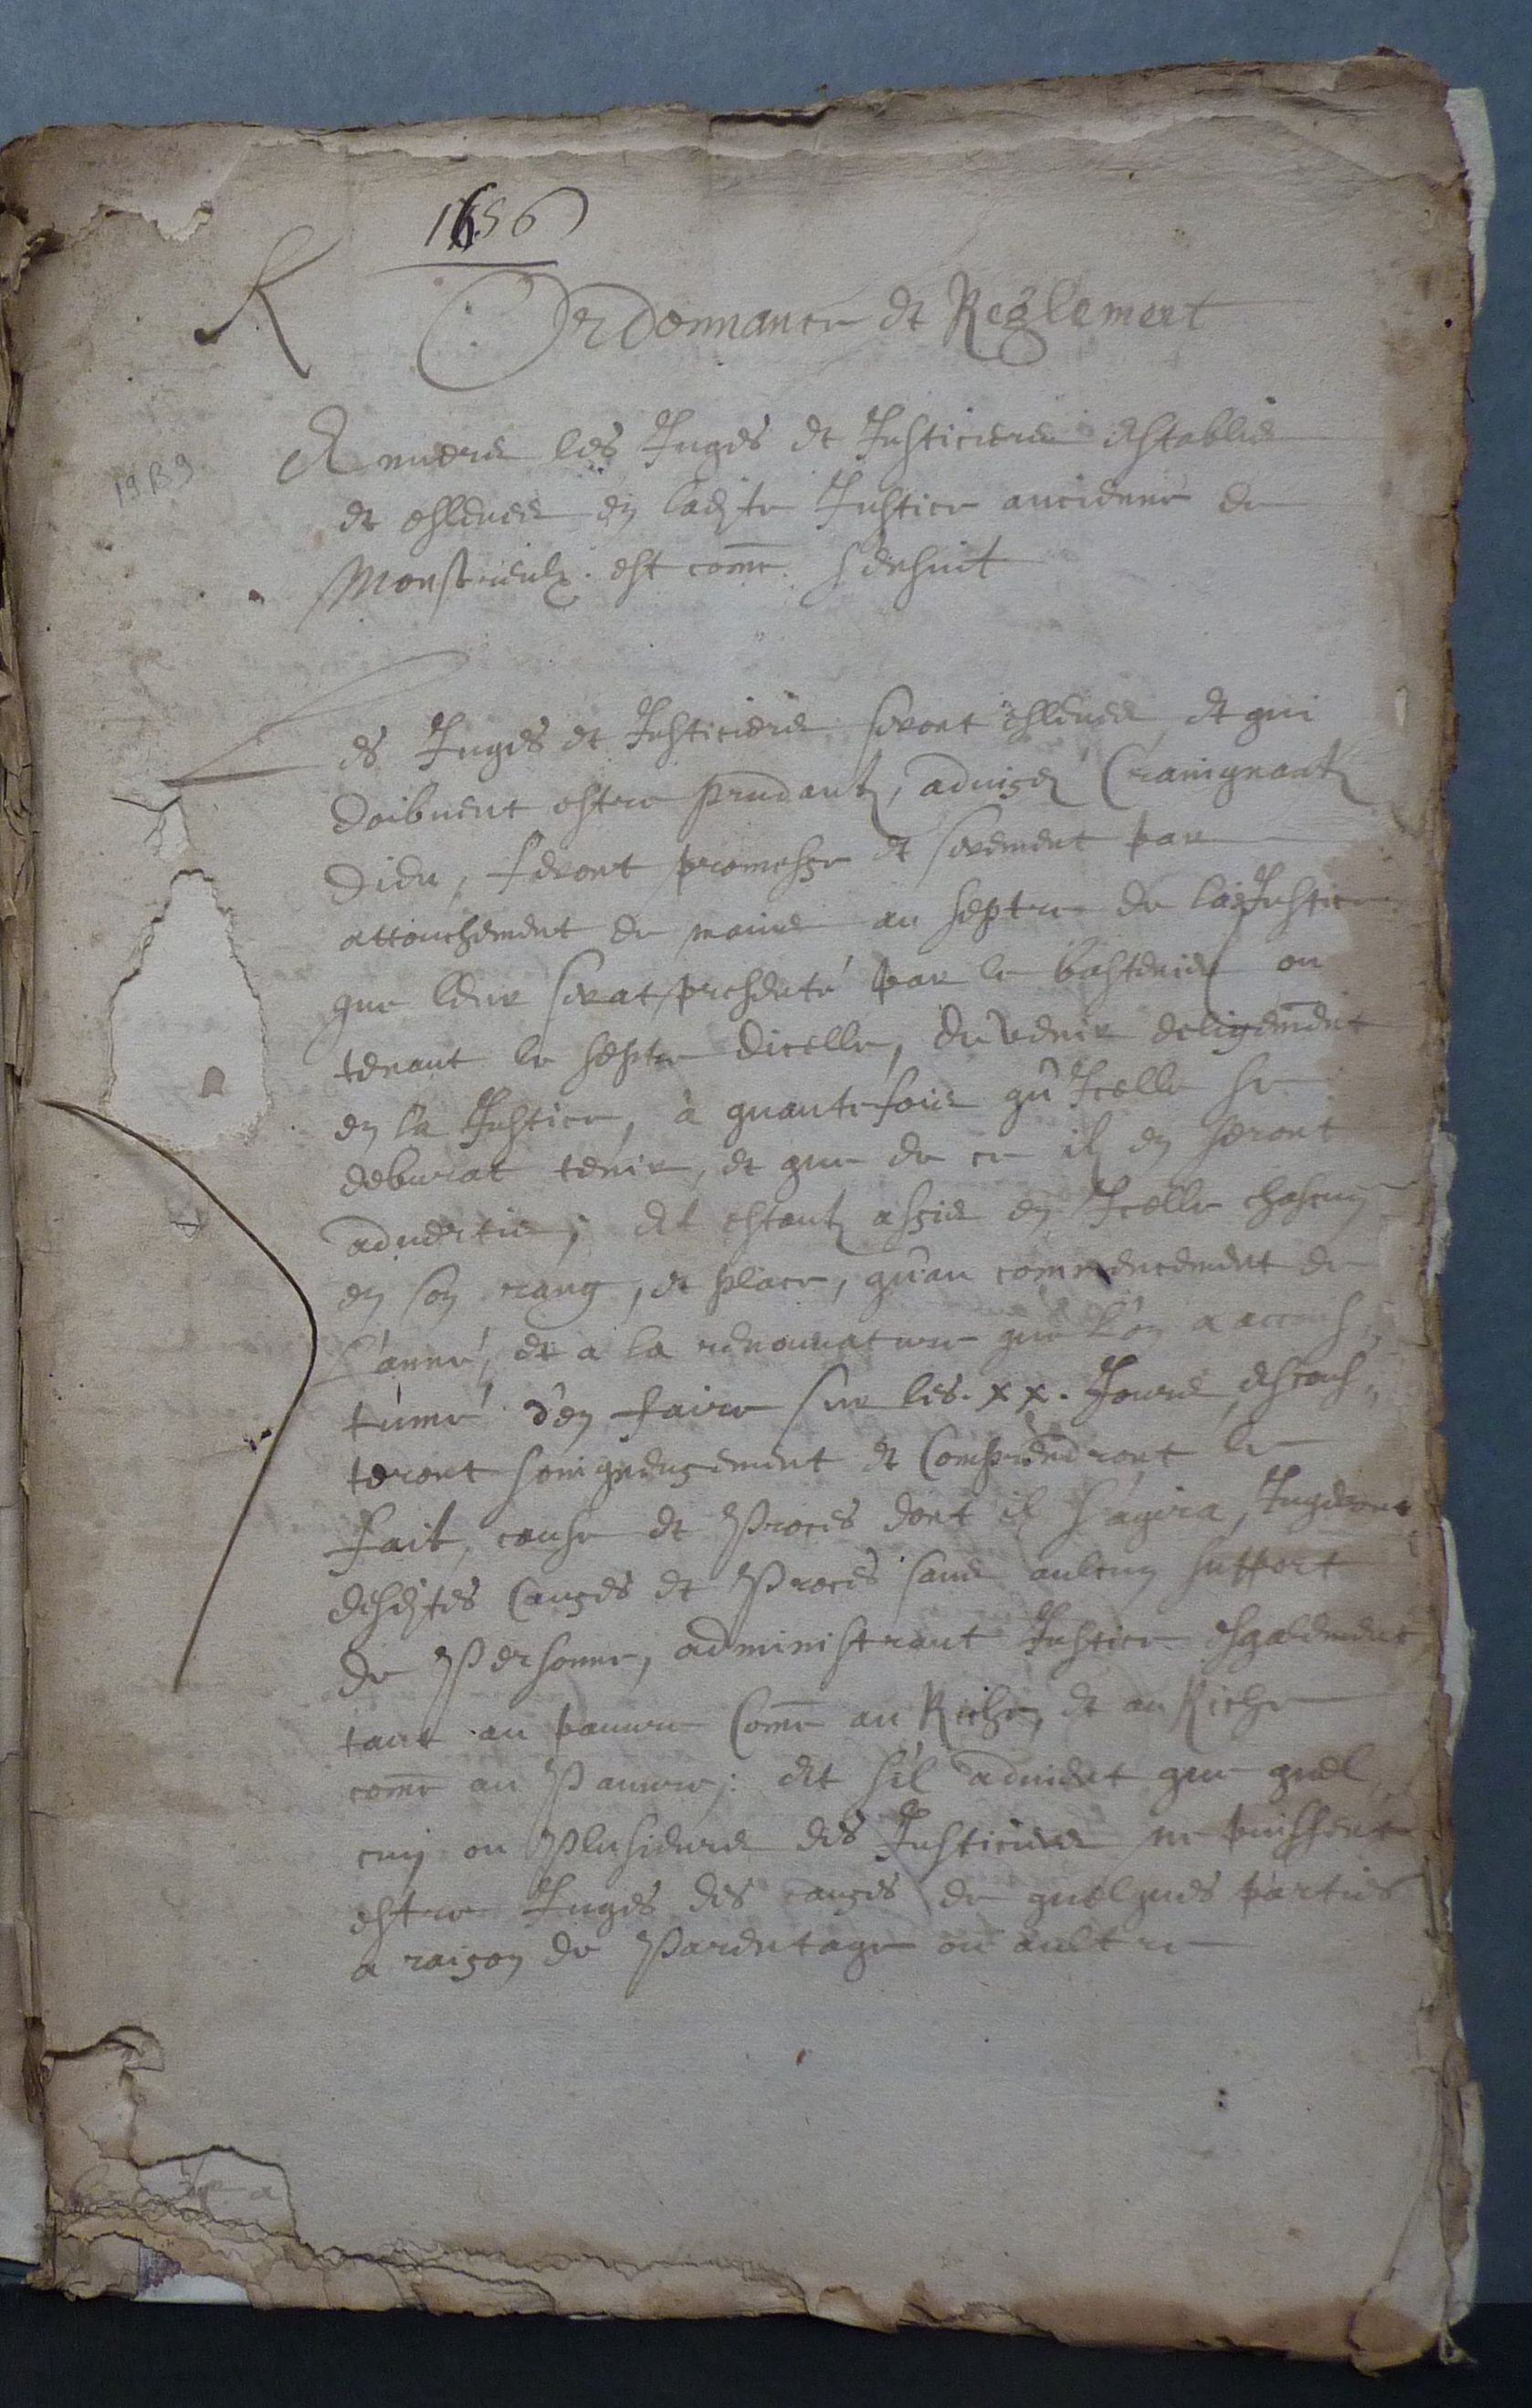 1656
R
Ordonnance et Reglement
19.B9
Envers les Juges et Justiciers establis
et esleues en ladjte Justice ancienne de
Monstrieulx. est come sensuit
Les Juges et Justiciers seront esleues, et qui
doibuent estre prudants, aduisez Craingnants
Dieu, feront promesse et serement par
attouchement de mains au septre de lad Justice
que leur serat presenté par le bastenier ou
tenant le septre dicelle, de venir deligemment
en la Justice, à quantefois qu'Icelle se
deburat tenir, et que de ce ilz en seront
aduertis; et estants assis en Icelle chascung
en son rang, et place, qu'au commencement de
l'anné, et a la renouuature que l'on a accous„
tumé d'en faire sur les .xx. Jours, escous„
teront soingneusement et Comprendront le
fait, cause et Proces dont il s'agira, Jugeront
desdjtes Causes et Proces sans aulcung support
de Personne, administrant Justice esgalement
tant au pauure Come au Riche, et au Riche
come au Pauure; et s'il aduient que quel„
cung ou Plusieurs des Justiciers ne puissent
estre Juges des causes de quelques parties
a raison de Parentage ou aultre